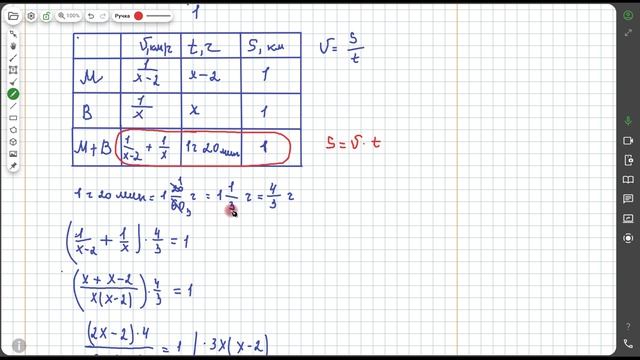 Ручка
1
V, км/ч t, ч S, км
М 1/(x-2) x-2 1
В 1/x x 1
М+В 1/(x-2) + 1/x 1ч 20 мин 1
V = S/t
S = V · t
1 ч 20 мин = 1 20/60 ч = 1 1/3 ч = 4/3 ч
(1/(x-2) + 1/x) · 4/3 = 1
((x+x-2)/(x(x-2))) · 4/3 = 1
(2x-2)·4 = 1 | · 3x(x-2)